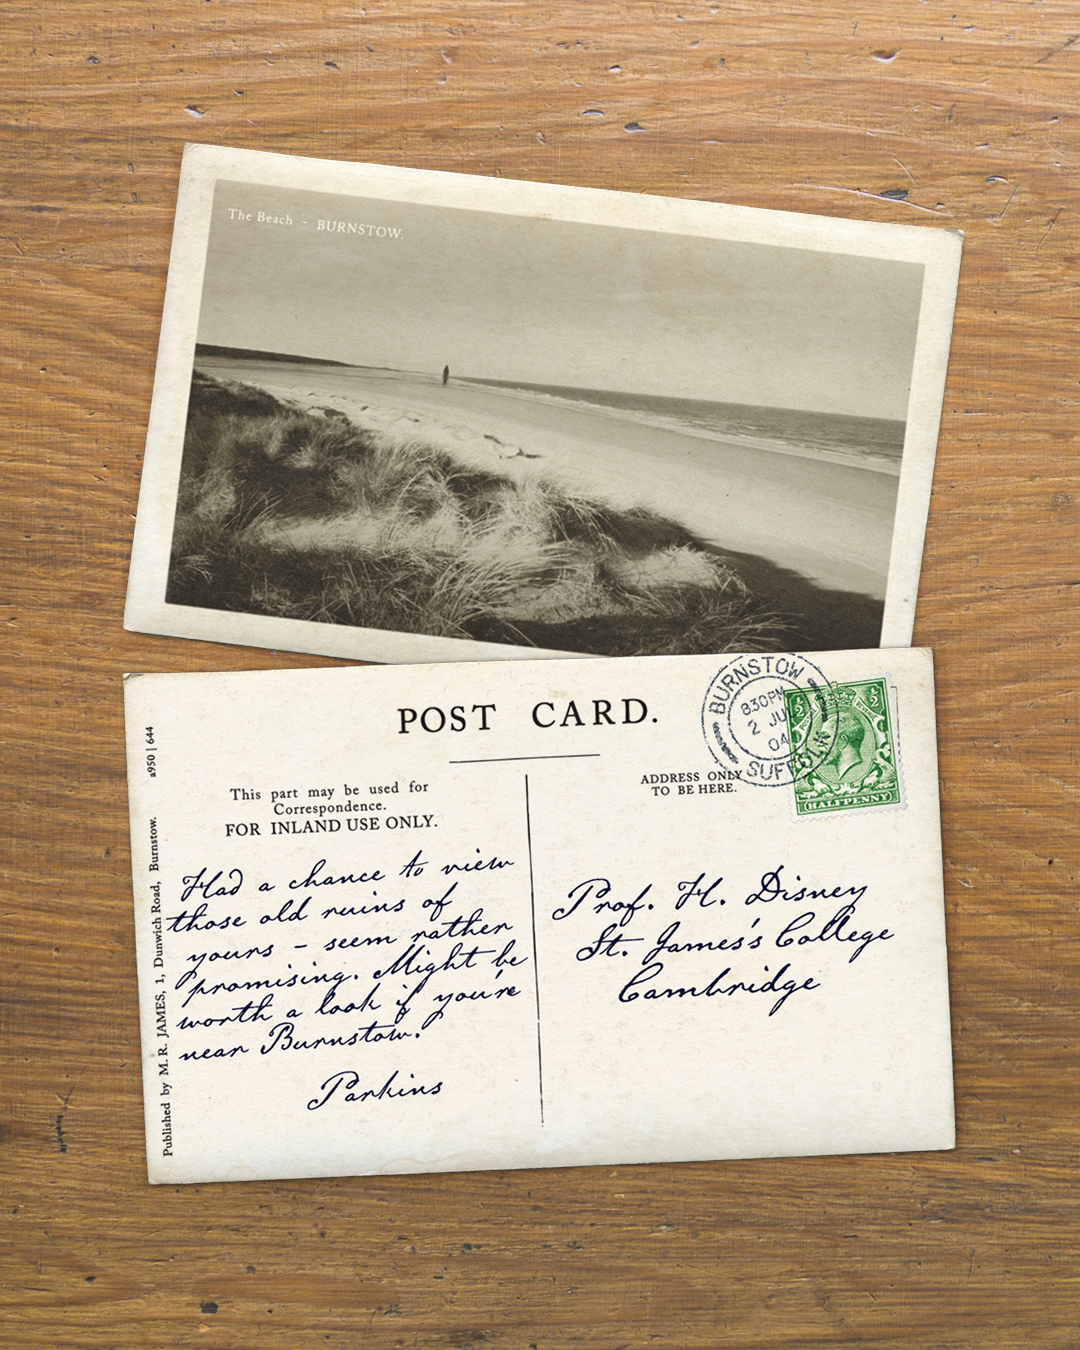 The Beach - BURNSTOW.
POST CARD.
BURNSTOW
830PM
2 JU
04
SUFFOLK
½ ½
HALFPENNY
This part may be used for
Correspondence.
FOR INLAND USE ONLY.
ADDRESS ONLY
TO BE HERE.
Had a chance to view
those old ruins of
yours - seem rather
promising. Might be
worth a look if you're
near Burnstow.
Parkins
Prof. H. Disney
St. James's College
Cambridge
Published by M. R. JAMES, 1, Dunwich Road, Burnstow. a950 | 644